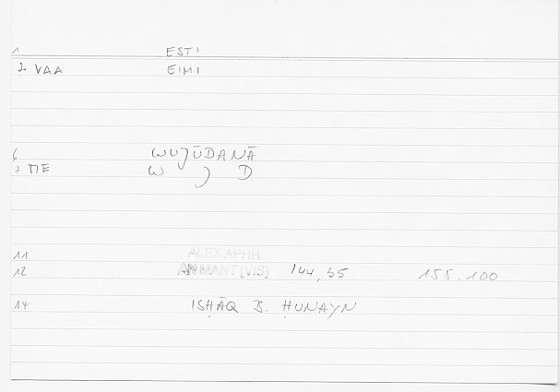 1 ESTI
2 VAA EIMI
6 WUJŪDANĀ
7 ΠE W J D
11 ALEX.APHR
12 AN.MANT [VIS] 144,35 155.100
14 ISḤĀQ B. ḤUNAYN